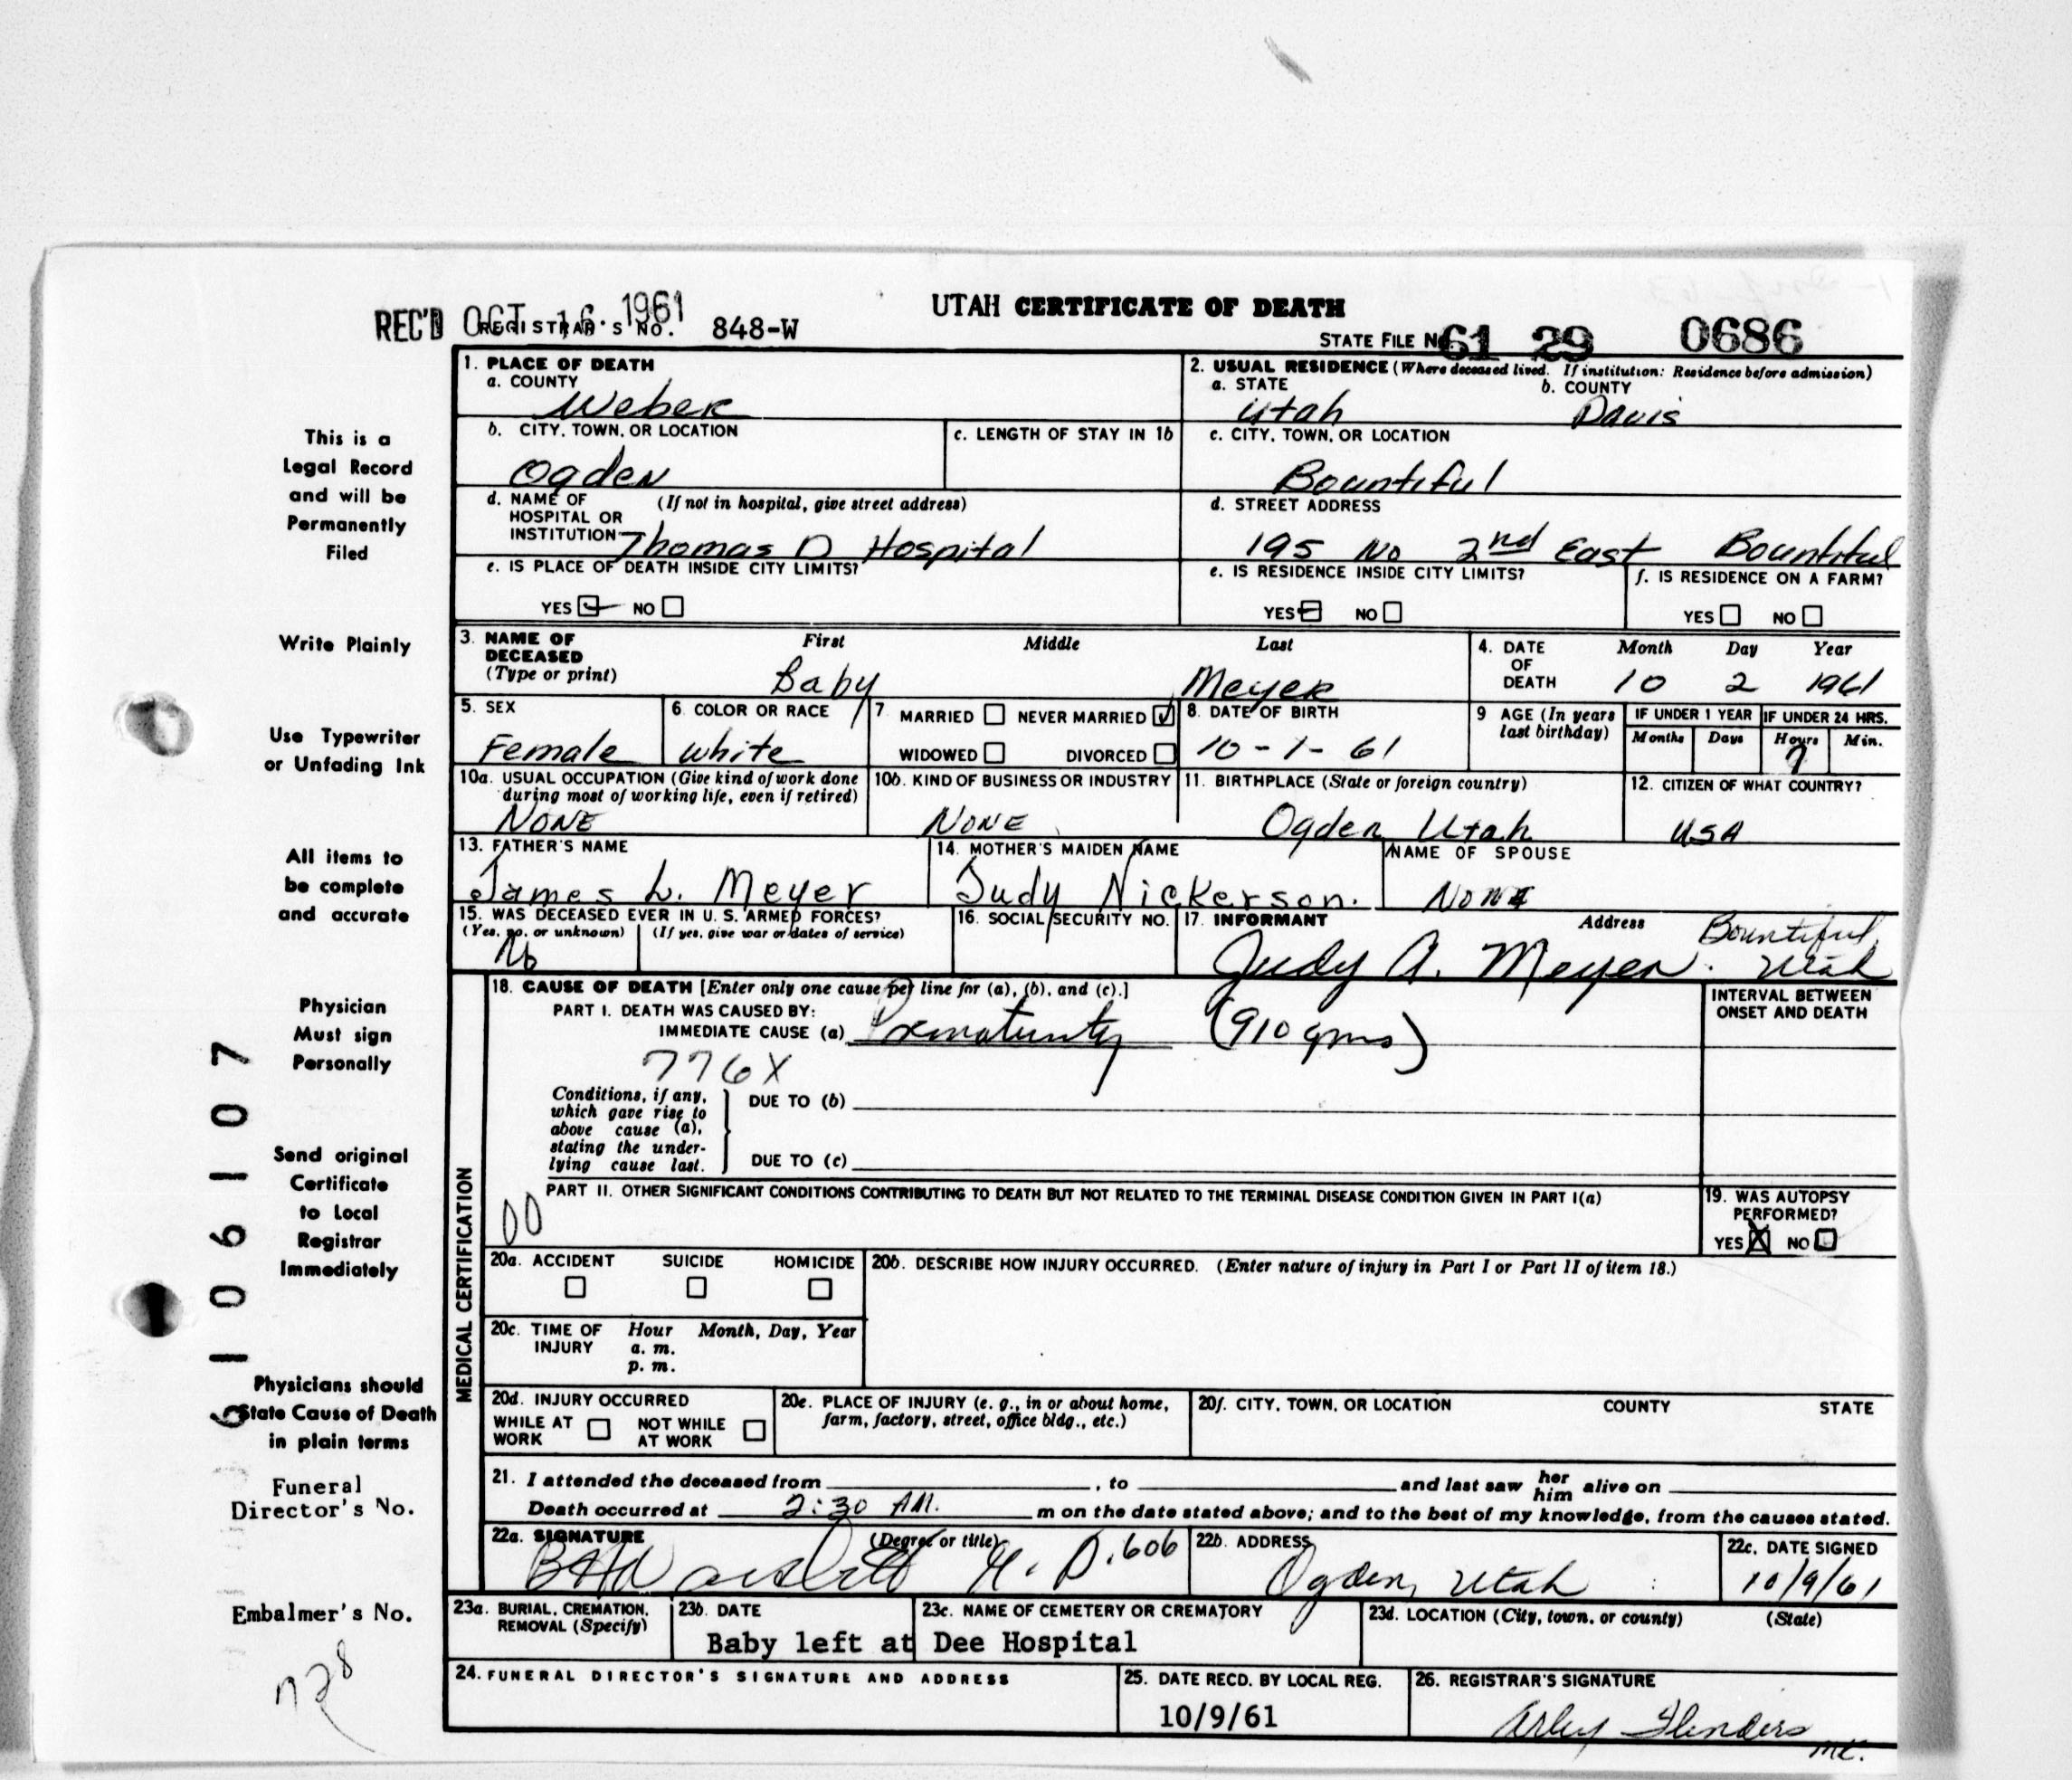 UTAH CERTIFICATE OF DEATH
REC'D OCT 16 1961
REGISTRAR'S NO. 848-W
STATE FILE NO. 61 29 0686
This is a
Legal Record
and will be
Permanently
Filed
Write Plainly
Use Typewriter
or Unfading Ink
All items to
be complete
and accurate
Physician
Must sign
Personally
Send original
Certificate
to Local
Registrar
Immediately
Physicians should
State Cause of Death
in plain terms
Funeral
Director's No.
Embalmer's No.
728
6106107
1. PLACE OF DEATH
a. COUNTY
Weber
2. USUAL RESIDENCE (Where deceased lived. If institution: Residence before admission)
a. STATE b. COUNTY
Utah Davis
b. CITY, TOWN, OR LOCATION
Ogden
c. LENGTH OF STAY IN 1b
c. CITY, TOWN, OR LOCATION
Bountiful
d. NAME OF (If not in hospital, give street address)
HOSPITAL OR
INSTITUTION Thomas D Hospital
d. STREET ADDRESS
195 No 2nd East Bountiful
e. IS PLACE OF DEATH INSIDE CITY LIMITS?
YES NO
e. IS RESIDENCE INSIDE CITY LIMITS?
YES NO
f. IS RESIDENCE ON A FARM?
YES NO
3. NAME OF First Middle Last
DECEASED
(Type or print) Baby Meyer
4. DATE Month Day Year
OF
DEATH 10 2 1961
5. SEX
Female
6. COLOR OR RACE
White
7 MARRIED NEVER MARRIED
WIDOWED DIVORCED
8. DATE OF BIRTH
10-1-61
9 AGE (In years
last birthday)
IF UNDER 1 YEAR IF UNDER 24 HRS.
Months Days Hours Min.
7
10a. USUAL OCCUPATION (Give kind of work done
during most of working life, even if retired)
NONE
10b. KIND OF BUSINESS OR INDUSTRY
NONE
11. BIRTHPLACE (State or foreign country)
Ogden Utah
12. CITIZEN OF WHAT COUNTRY?
USA
13. FATHER'S NAME
James L. Meyer
14. MOTHER'S MAIDEN NAME
Judy Nickerson.
NAME OF SPOUSE
None
15. WAS DECEASED EVER IN U. S. ARMED FORCES?
(Yes, no, or unknown) (If yes, give war or dates of service)
No
16. SOCIAL SECURITY NO.
17. INFORMANT Address
Judy A. Meyer. Bountiful, Utah
MEDICAL CERTIFICATION
18. CAUSE OF DEATH [Enter only one cause per line for (a), (b), and (c).]
PART I. DEATH WAS CAUSED BY:
IMMEDIATE CAUSE (a) Prematurity (910 gms)
776X
INTERVAL BETWEEN
ONSET AND DEATH
Conditions, if any,
which gave rise to
above cause (a),
stating the under-
lying cause last.
DUE TO (b)
DUE TO (c)
PART II. OTHER SIGNIFICANT CONDITIONS CONTRIBUTING TO DEATH BUT NOT RELATED TO THE TERMINAL DISEASE CONDITION GIVEN IN PART I(a)
00
19. WAS AUTOPSY
PERFORMED?
YES X NO
20a. ACCIDENT SUICIDE HOMICIDE
20b. DESCRIBE HOW INJURY OCCURRED. (Enter nature of injury in Part I or Part II of item 18.)
20c. TIME OF Hour Month, Day, Year
INJURY a. m.
p. m.
20d. INJURY OCCURRED
WHILE AT NOT WHILE
WORK AT WORK
20e. PLACE OF INJURY (e. g., in or about home,
farm, factory, street, office bldg., etc.)
20f. CITY, TOWN, OR LOCATION COUNTY STATE
21. I attended the deceased from , to and last saw her him alive on
Death occurred at 2:30 AM. m on the date stated above; and to the best of my knowledge, from the causes stated.
22a. SIGNATURE (Degree or title)
M. D. 606
22b. ADDRESS
Ogden, Utah
22c. DATE SIGNED
10/9/61
23a. BURIAL, CREMATION,
REMOVAL (Specify)
23b. DATE
23c. NAME OF CEMETERY OR CREMATORY
Baby left at Dee Hospital
23d. LOCATION (City, town, or county) (State)
24. FUNERAL DIRECTOR'S SIGNATURE AND ADDRESS
25. DATE RECD. BY LOCAL REG.
10/9/61
26. REGISTRAR'S SIGNATURE
Arley Flinders
mc.